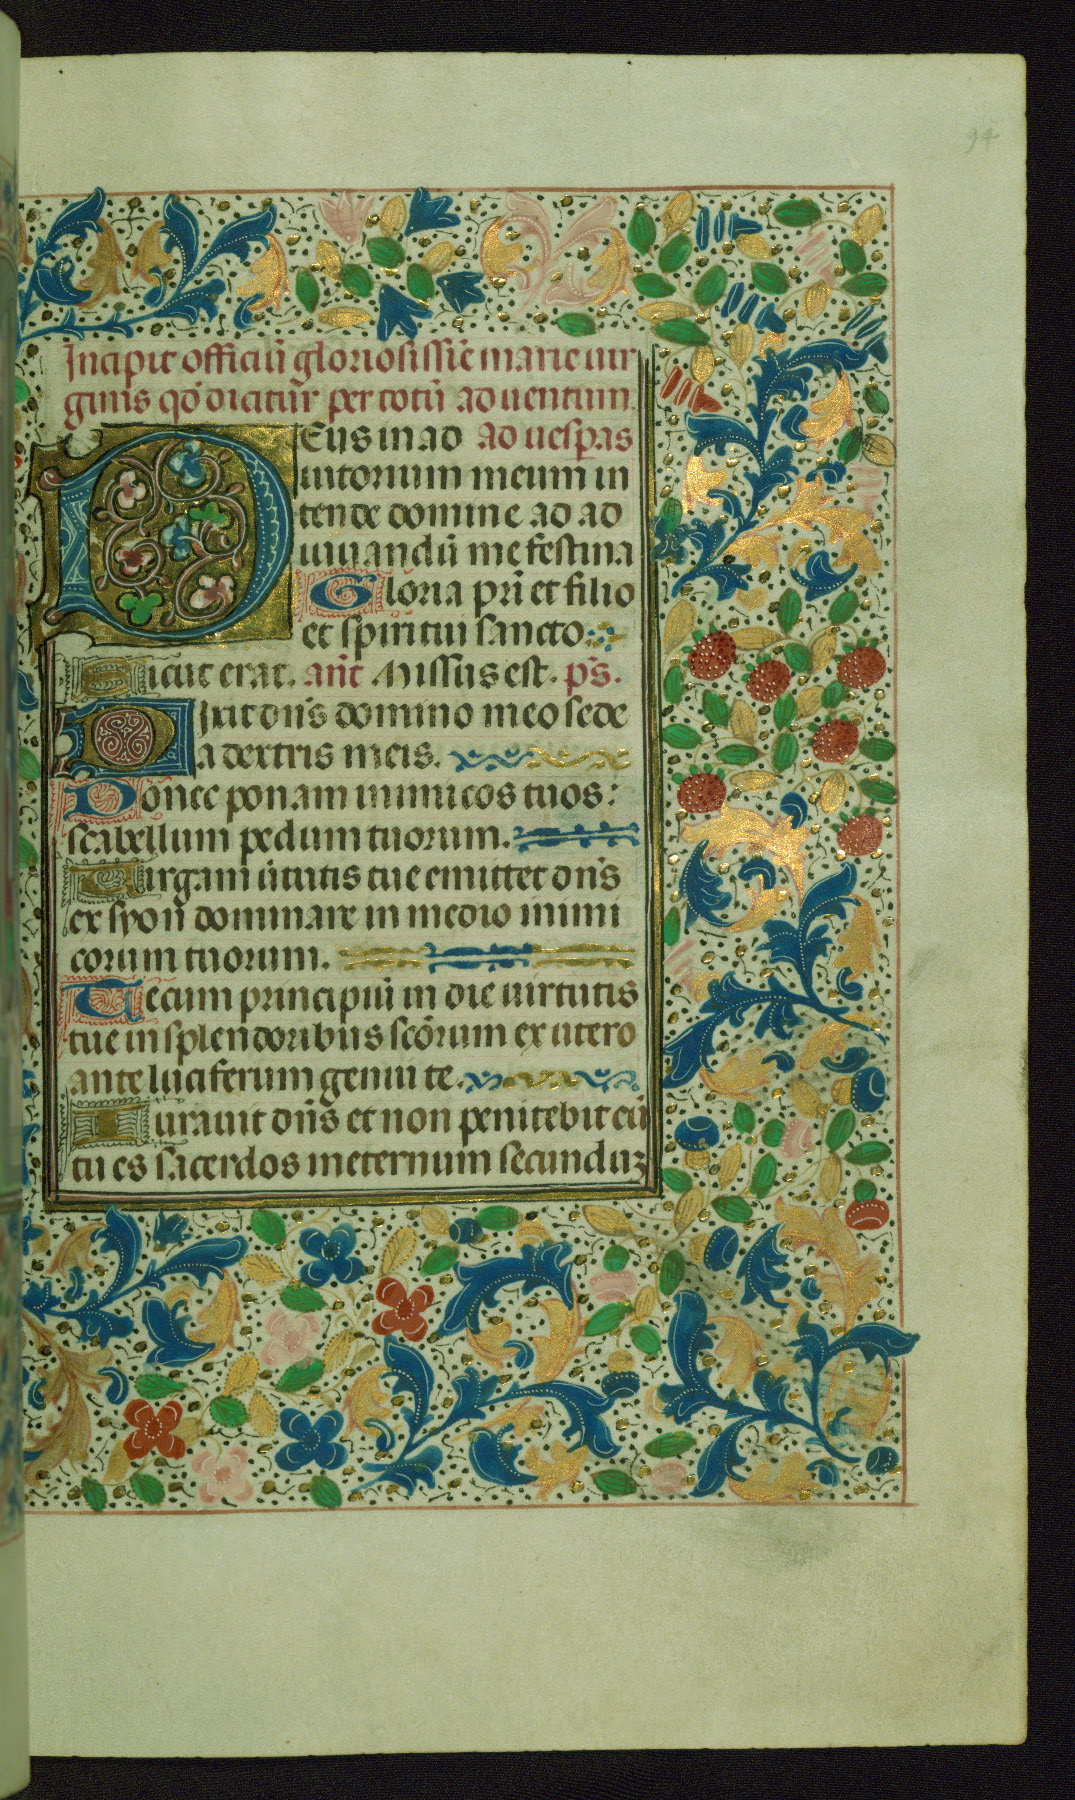 94
Incipit officiū gloriosissīe marie uir
ginis qd̄ dicitur per totū aduentum.
DEus in ad ad uesp̄as
iutorium meum in
tende domine ad ad
iuuandū me festina
Gloria pr̄i et filio
et spiritui sancto.
Sicut erat. an̄t Missus est. ps̄.
Dixit dn̄s domino meo sede
a dextris meis.
Donec ponam inimicos tuos:
scabellum pedum tuorum.
Uirgam ūtutis tue emittet dn̄s
ex syon dominare in medio inimi
corum tuorum.
Tecum principiū in die uirtutis
tue in splendoribus scōrum ex utero
ante luciferum genui te.
Iurauit dn̄s et non penitebit eū
tu es sacerdos in eternum secunduȝ